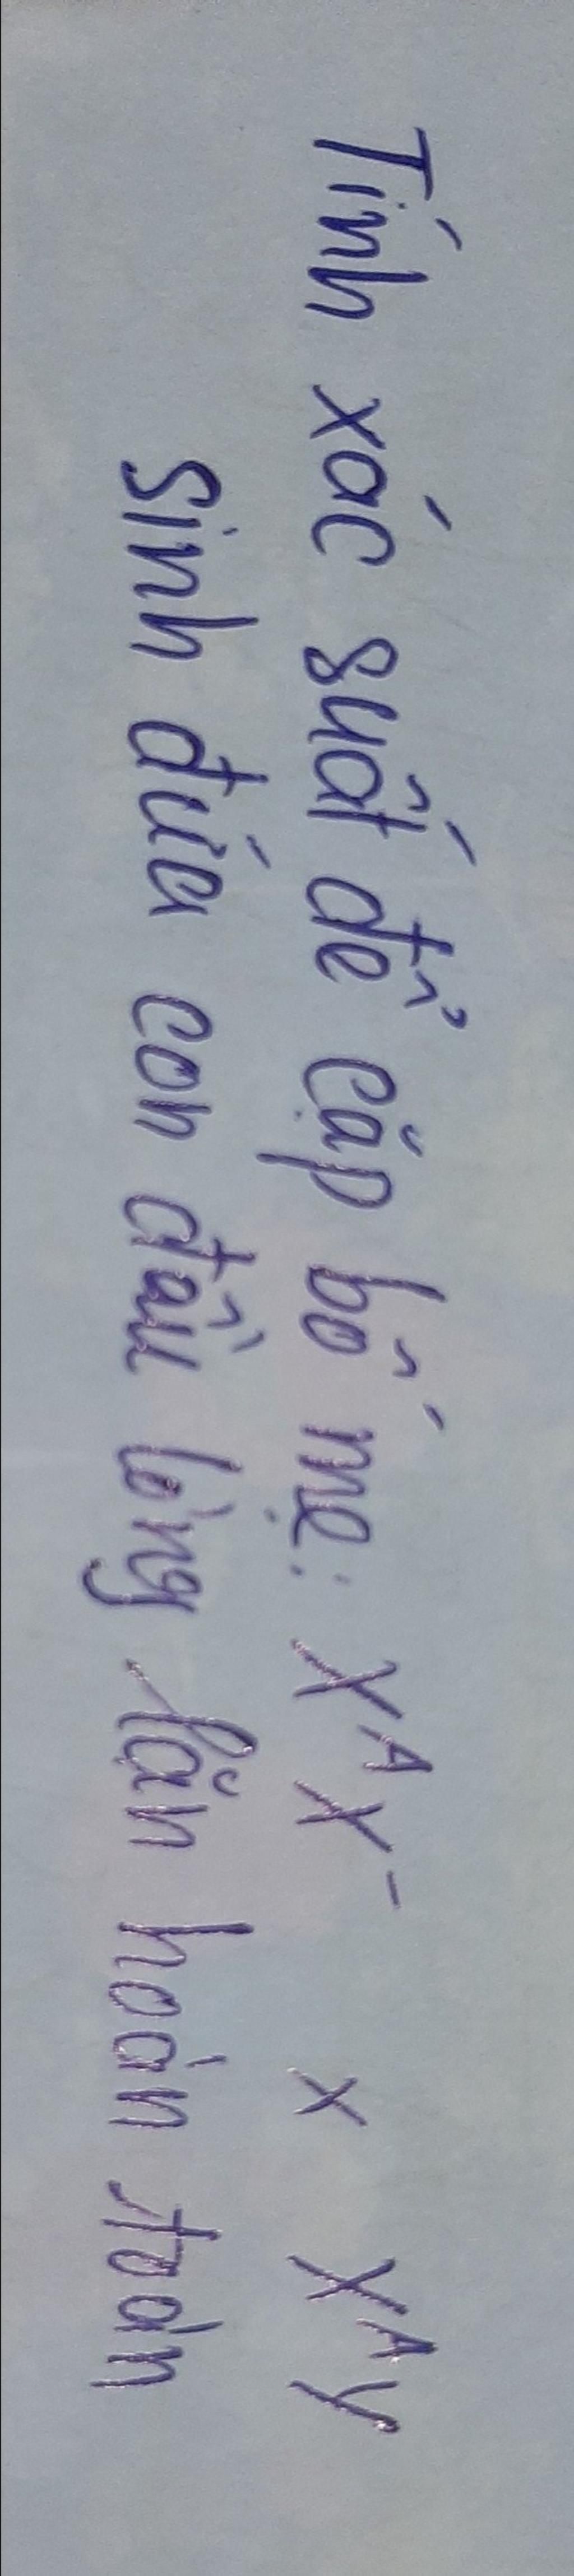 Tính xác suất để cặp bố mẹ: Xᴬ X⁻ x Xᴬ Y
sinh đứa con đầu lòng lặn hoàn toàn